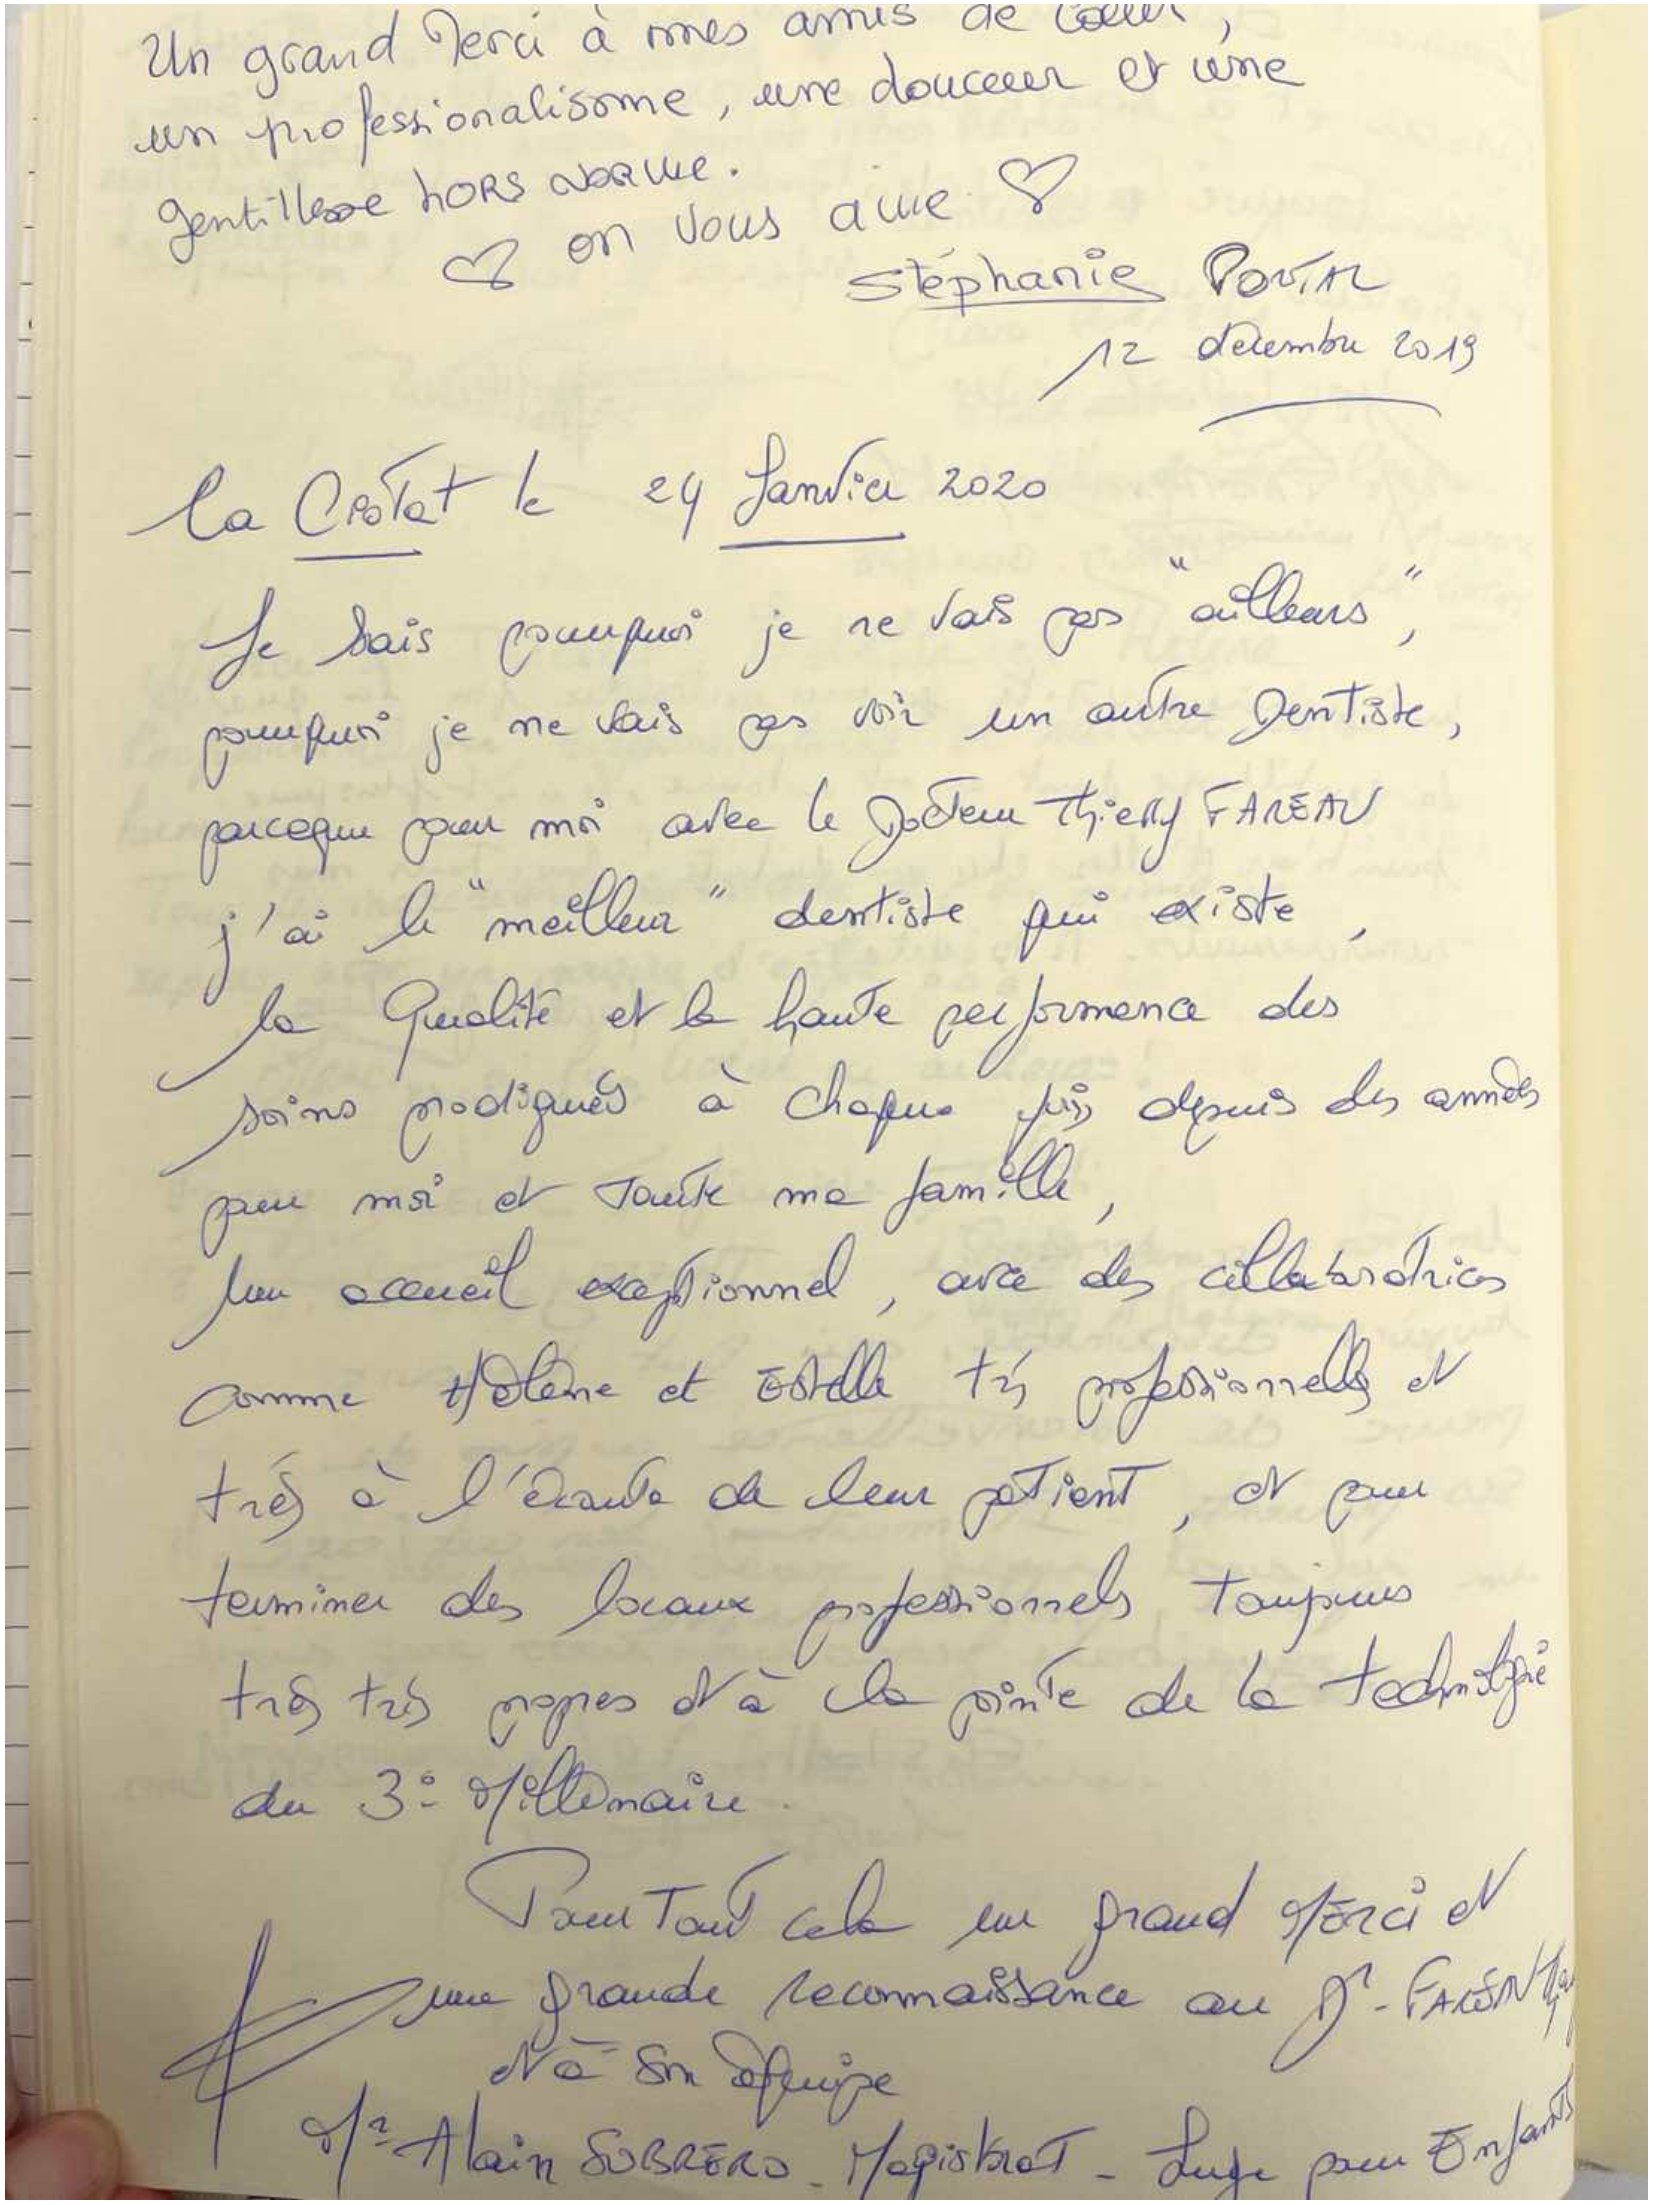 Un grand Merci à mes amis de Coeur,
un professionalisme, une douceur et une
gentillesse HORS NORME.
on vous aime
Stéphanie
12 décembre 2019
la Ciotat le 24 Janvier 2020
Je sais pourquoi je ne vais pas "ailleurs",
pourquoi je ne vais pas voir un autre Dentiste,
parceque pour moi avec le Docteur Thierry FAREAU
j'ai le "meilleur" dentiste qui existe,
la Qualité et la haute performence des
soins prodigués à chaque fois, depuis des années
pour moi et toute ma famille,
Un accueil exceptionnel, avec des collaboratrices
comme Hélène et Estelle très professionnelles et
très à l'écoute de leur patient, et pour
terminer des locaux professionnels toujours
très très propres et à la pointe de la technologie
du 3° Millénaire.
Pour Tout cela un grand MERCI et
une grande reconnaissance au Dr - FAREAU
et à son équipe
Mr Alain SOBRERO - Magistrat - Juge pour Enfants